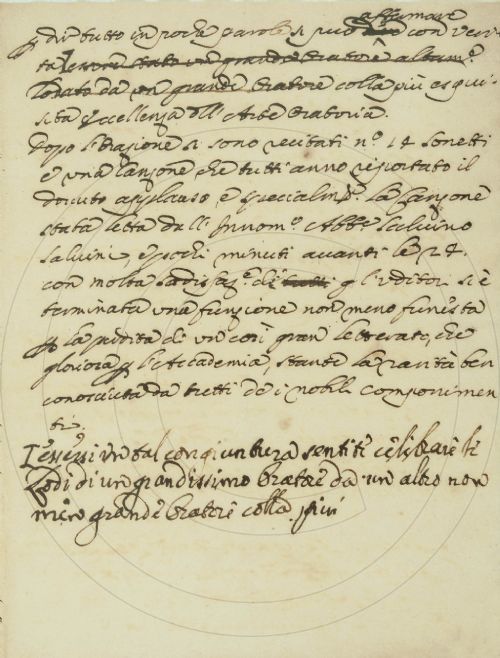 affirmare
p dir tutto in poche parole si può dire con veri-
tà essersi stato un grande Oratore altam.e
Lodato da un grande Oratore colla più esqui-
sita Eccellenza dell'Arte Oratoria.
Dopo l'Orazione si sono recitati n.o 14 sonetti
e una Canzone che tutti anno riportato il
dovuto applauso e specialm.e La Canzone
stata letta dall' Abbe Salvino
Salvini, e pochi minuti avanti le 24.
con molta sadisfaz.e di tutti gl'Uditori si è
terminata una funzione non meno funesta
p La perdita di un così gran Letterato, che
gloriosa p l'Accademia, stante La rarità ben
conosciuta da tutti de i nobili componimen
ti.
Essersi in tal congiuntura sentite celebrare le
Lodi di un grandissimo Oratore da un altro non
men grande Oratore colla più